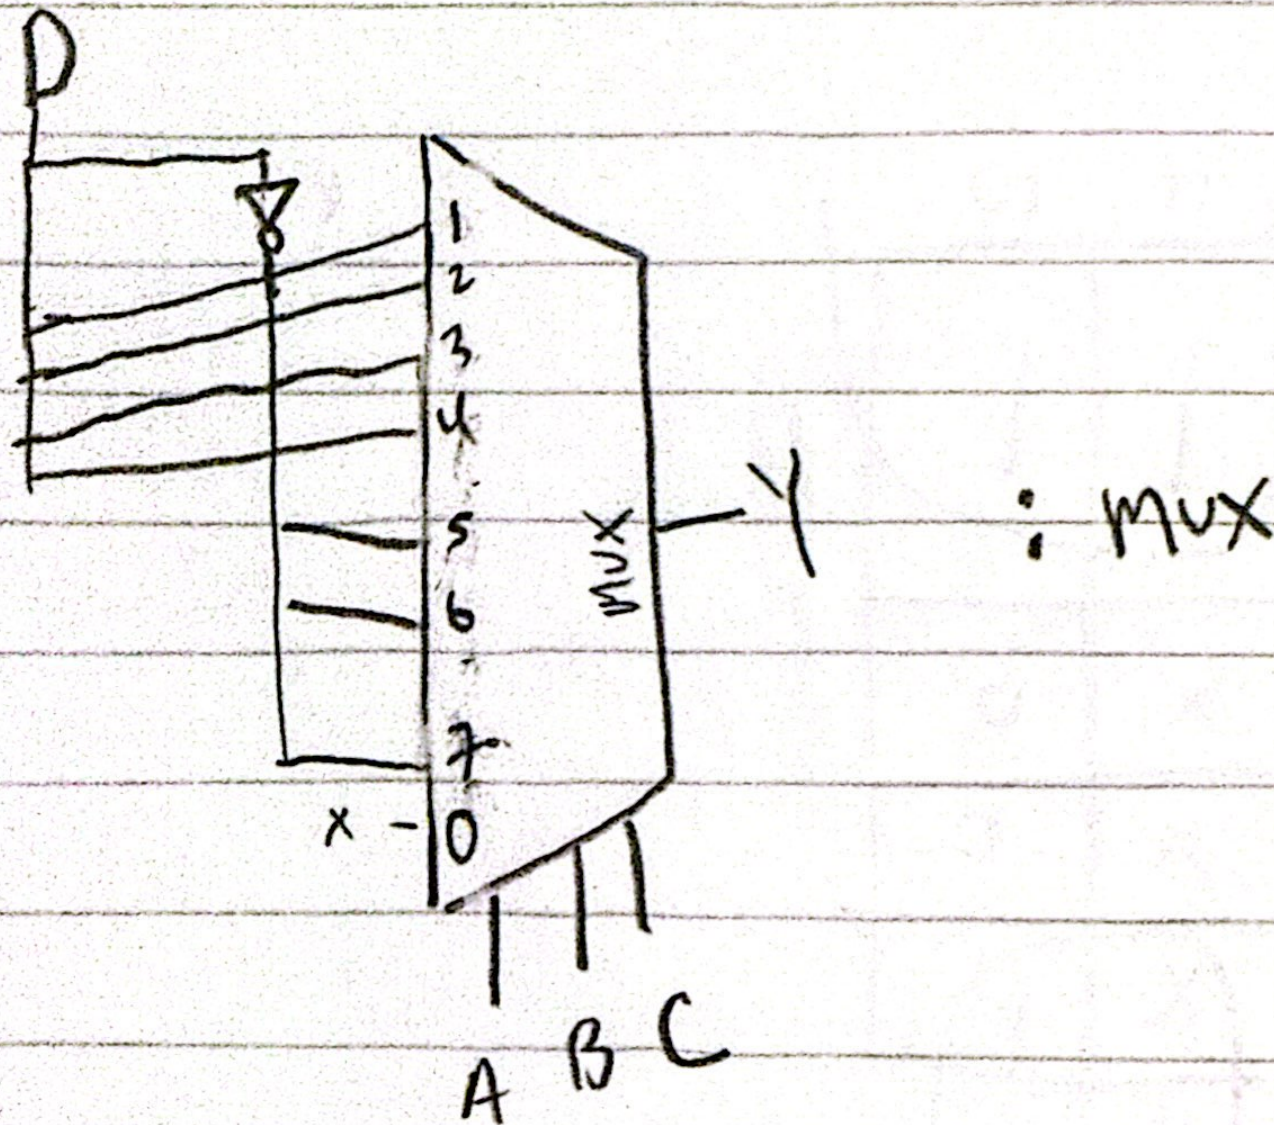 D
1
2
3
4
5
6
7
x - 0
MUX
Y
: MUX
A B C